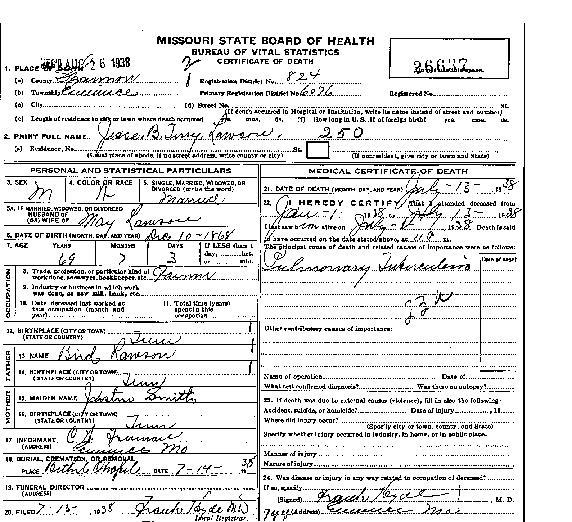 MISSOURI STATE BOARD OF HEALTH
BUREAU OF VITAL STATISTICS
CERTIFICATE OF DEATH
AUG 26 1938
26637
1. PLACE OF DEATH
(a) County Shannon Registration District No. 824
(b) Township Eminence Primary Registration District No. 6076 Registered No.
(c) City (d) Street No. St.
(If death occurred in Hospital or Institution, write its name instead of street and number)
(e) Length of residence in city or town where death occurred yrs. mos. (f) How long in U.S. if of foreign birth? yrs. mos. ds.
2. PRINT FULL NAME Jesse B. Lawson 250
(a) Residence, No. St.
(Usual place of abode, if no street address, write county or city) (If nonresident, give city or town and State)
PERSONAL AND STATISTICAL PARTICULARS
3. SEX M 4. COLOR OR RACE 5. SINGLE, MARRIED, WIDOWED, OR DIVORCED (write the word) Married
5A. IF MARRIED, WIDOWED, OR DIVORCED HUSBAND OF (OR) WIFE OF May Lawson
6. DATE OF BIRTH (MONTH, DAY, AND YEAR) Dec 10-1868
7. AGE YEARS MONTHS DAYS If LESS than 1 day, hrs. min.
69 7 3
OCCUPATION
8. Trade, profession, or particular kind of work done, sawyer, bookkeeper, etc. Farmer
9. Industry or business in which work was done, saw mill, bank, etc.
10. Date deceased last worked at this occupation (month and year) 11. Total time (years) spent in this occupation
12. BIRTHPLACE (CITY OR TOWN) (STATE OR COUNTRY) Tenn
FATHER
13. NAME Bird Lawson
14. BIRTHPLACE (CITY OR TOWN) (STATE OR COUNTRY) Tenn
MOTHER
15. MAIDEN NAME Smith
16. BIRTHPLACE (CITY OR TOWN) (STATE OR COUNTRY) Tenn
17. INFORMANT (ADDRESS) Eminence Mo
18. BURIAL, CREMATION, OR REMOVAL
PLACE Chapel DATE 7-14- 38
19. FUNERAL DIRECTOR (ADDRESS)
20. FILED 7-13- 1938 Frank Hyde M.D.
Local Registrar.
MEDICAL CERTIFICATE OF DEATH
21. DATE OF DEATH (MONTH, DAY, AND YEAR) July-13- 1938
22. I HEREBY CERTIFY, That I attended deceased from
Jan-1- 1938, to July 13- 1938
I last saw him alive on July 1938. Death is said
to have occurred on the date stated above, at m.
The principal cause of death and related causes of importance were as follows:
Date of onset
Pulmonary Tuberculosis
Other contributory causes of importance:
Name of operation Date of
What test confirmed diagnosis? Was there an autopsy?
23. If death was due to external causes (violence), fill in also the following:
Accident, suicide, or homicide? Date of injury , 19
Where did injury occur?
(Specify city or town, county, and State)
Specify whether injury occurred in industry, in home, or in public place.
Manner of injury
Nature of injury
24. Was disease or injury in any way related to occupation of deceased?
If so, specify
(Signed) Frank Hyde , M. D.
(Address) Eminence Mo